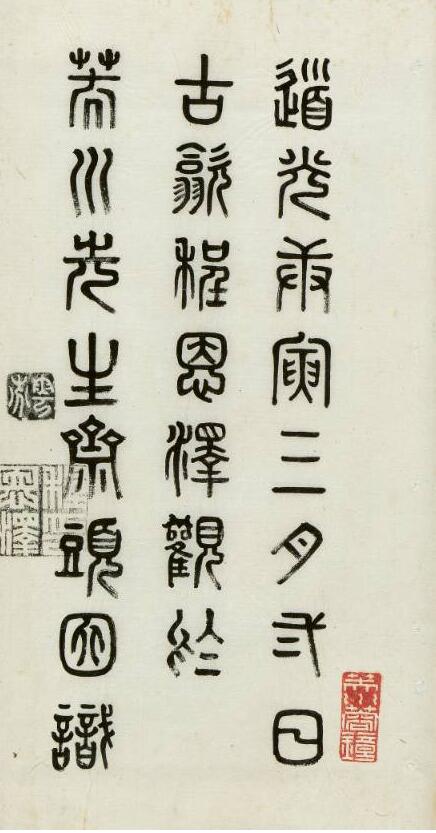 道光庚寅三月弍日
古歙程恩澤觀於
芙川先生齋頭因識
恩澤